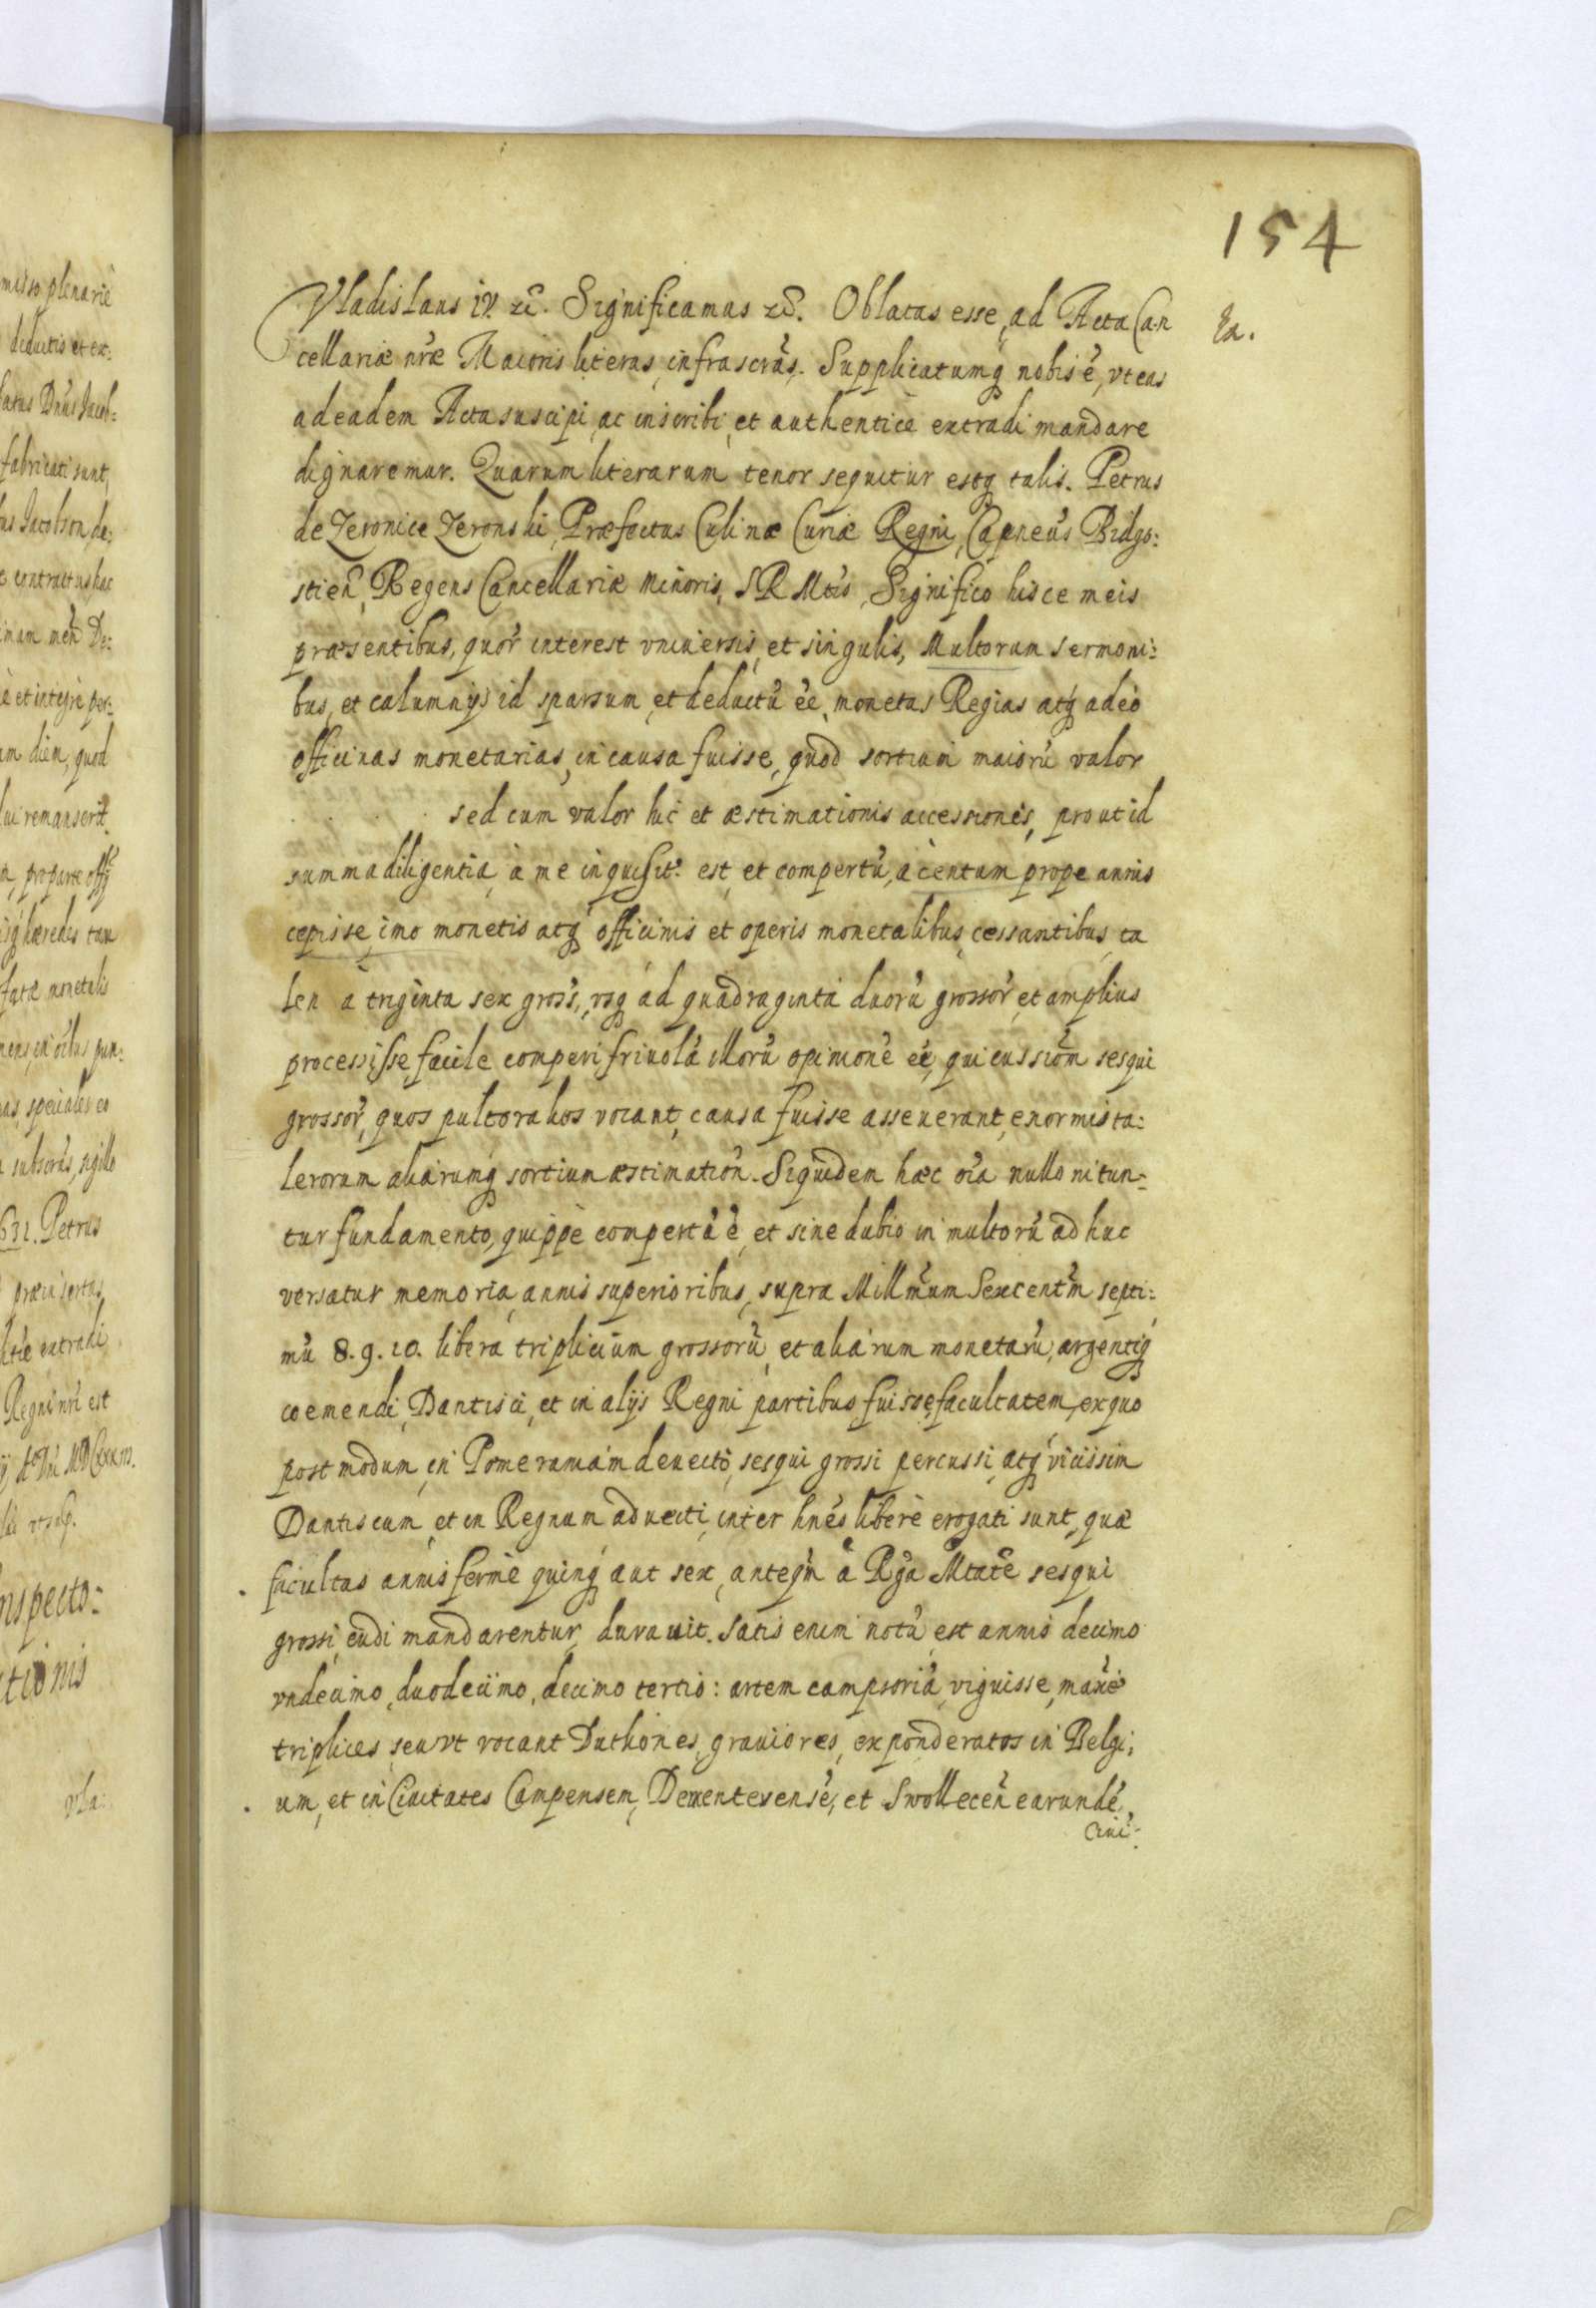 154
Vladislaus IV. etc. Significamus etc. Oblatas esse, ad Acta Can
cellariæ nr̃æ Maioris literas, infrascr̃as. Supplicatumq́ nobis ẽ, vt eas
ad eadem Acta suscipi, ac inscribi, et authenticè extradi mandare
dignaremur. Quarum literarum tenor sequitur estq́ talis. Petrus
de Zeronice Zeronski, Præfectus Culinæ Curiæ Regni, Capneus̃ Bidgo:
stien̄, Regens Cancellariæ Minoris, S R Mtis, Significo hisce meis
præsentibus, quor̃ interest vniuersis, et singulis, Multorum sermoni:
bus, et calumnijs id sparsum, et deductũ ẽe, monetas Regias atq́ adeò
officinas monetarias, in causa fuisse, quod sortium maiorũ valor
sed cum valor hic et æstimationis accessiones, prout id
summa diligentia, à me inquisit: est, et compertũ, à centum prope annis
cepisse, imo monetis atq́ officinis et operis monetalibus, cessantibus, ta
len à triginta sex gross̃, vsq́ ad quadraginta duorũ grossor̃, et amplius
processisse, facile comperi, friuolã illorũ opinionẽ ẽe, qui cussiom̃ sesqui
grossor̃, quos pultorakos vocant, causa fuisse asseuerant, enormis ta:
lerorum aliarumq́ sortium æstimatiõn. Siquidem hæc oĩa nullo nitun:
tur fundamento, quippe compertũ ẽ, et sine dubio in multorũ adhuc
versatur memoria, annis superioribus, supra Millm̃um Sexcentm̃ septi:
mũ 8. 9. 10. liberã triplicium grossorũ, et aliarum monetarũ, argentiq́
coemendi, Dantisci, et in alijs Regni partibus, fuisse, facultatem, ex quo
postmodum, in Pomeraniam deuecto, sesqui grossi percussi, atq́ vicissim
Dantiscum, et in Regnum aduecti, inter hñes liberè erogati sunt, quæ
facultas annis fermè quinq́ aut sex, anteq́m à Rg̃a Mtate sesqui
grossi, cudi mandarentur, durauit. Satis enim notũ est annis decimo
vndecimo, duodecimo, decimo tertio: artem campsoriã, viguisse, maxẽ
triplices, seu vt vocant Duthones, grauiores, exponderatos in Belgi:
um, et in Ciuitates Campensem, Deuentersensẽ, et Swollecen̄ earundẽ
Ciui: